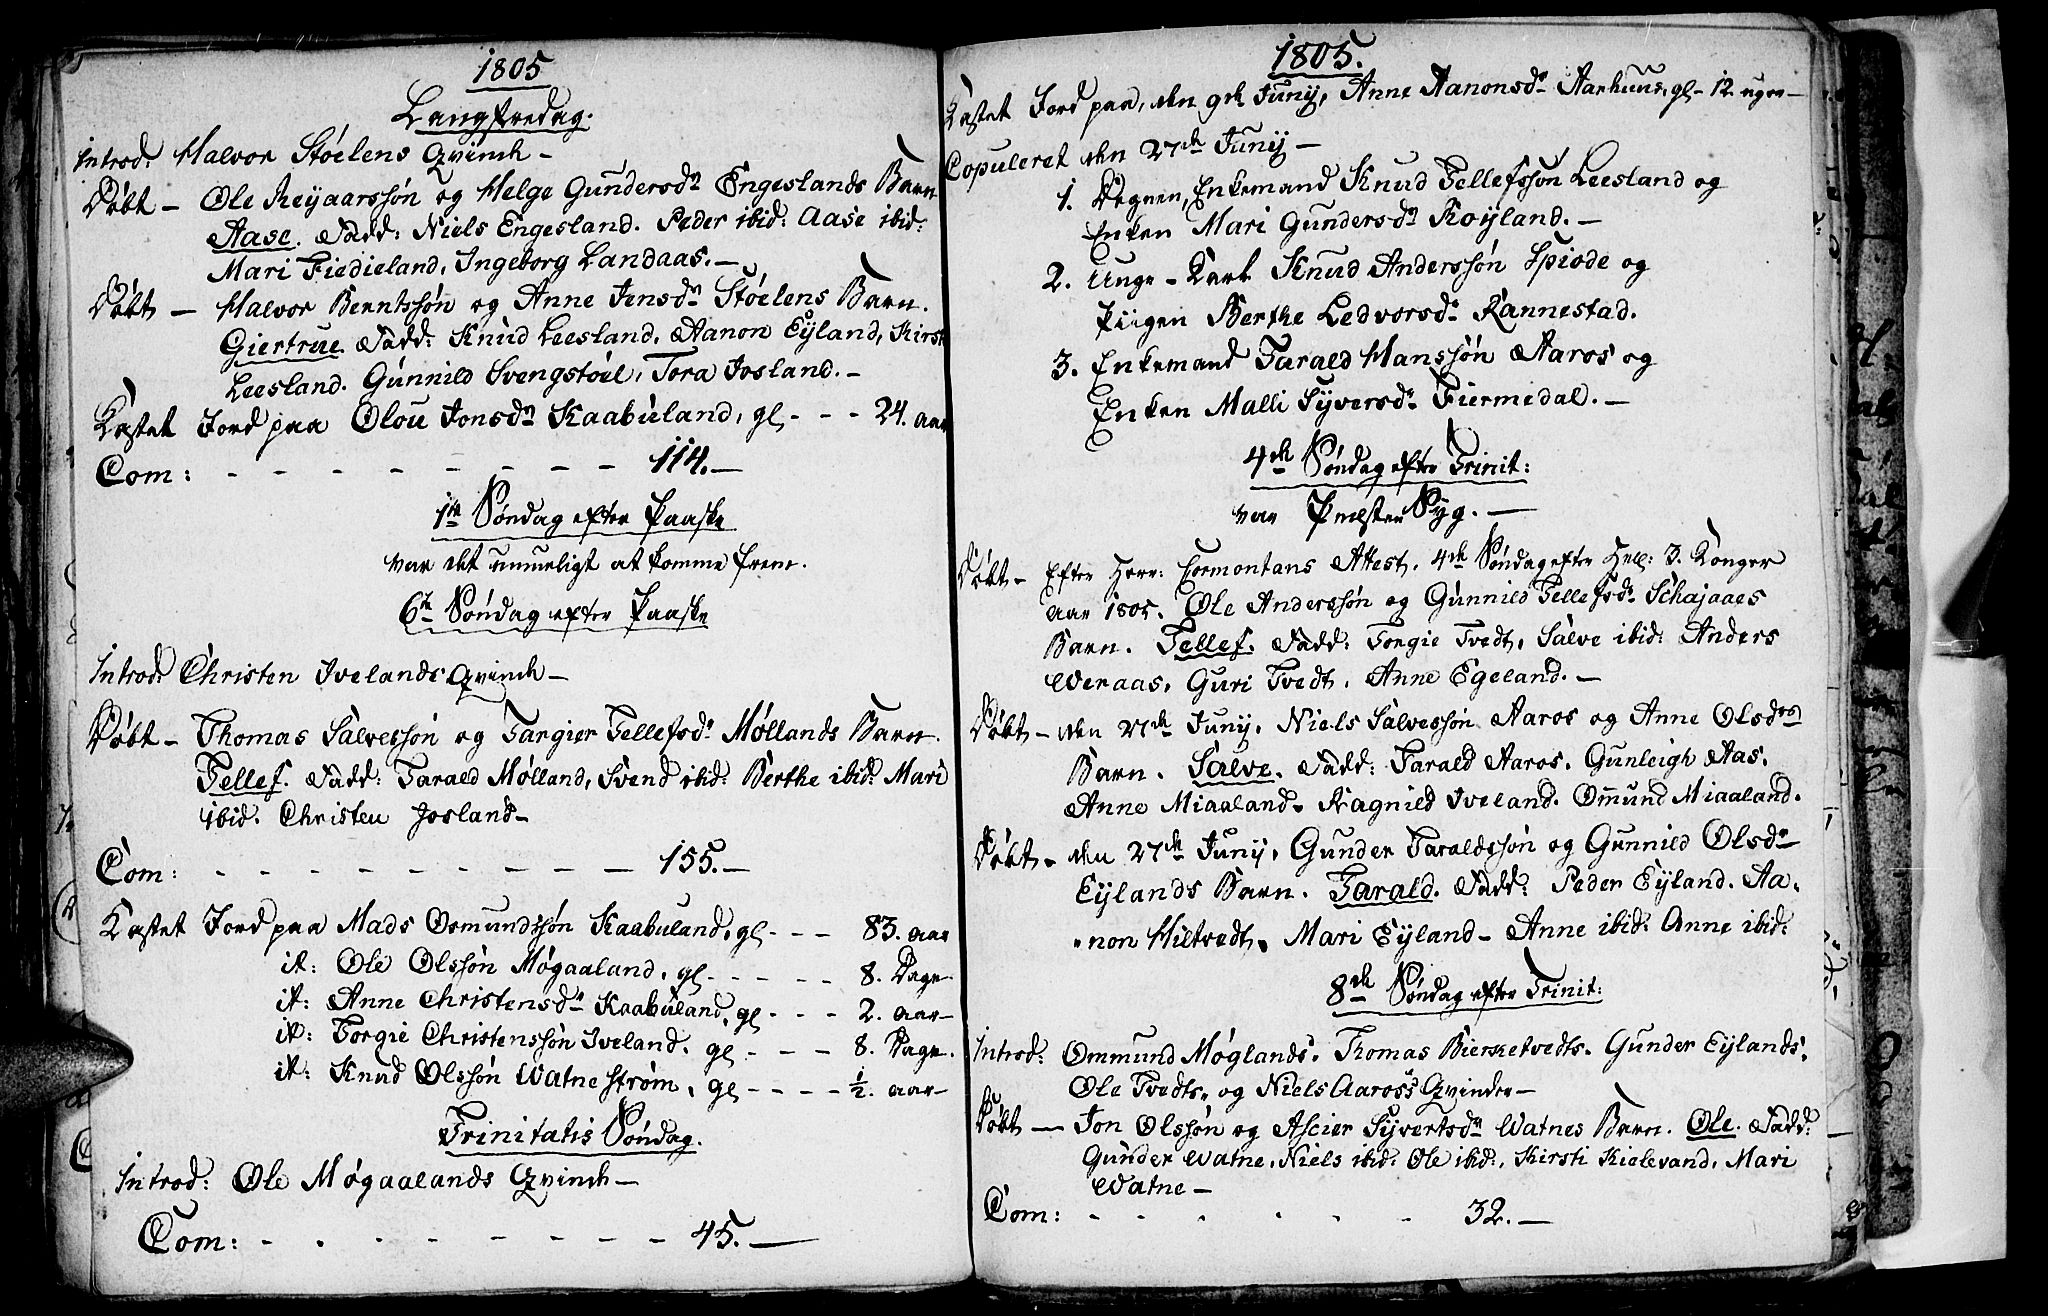 1805
Langfredag.
Introd: Halvor Stöelens Qvinde –
Döbt – Ole Reyaarssön og Helge Gundersdr Engeslands Barn
Aase. Fadd: Niels Engesland. Peder ibid: Aase ibid:
Mari Fiedieland, Ingeborg Landaas. –
Döbt – Halvor Berntssön og Anne Jensdr Stöelens Barn.
Giertrue. Fadd: Knud Leesland, Aanon Eyland, Kirst
Leesland. Gunnild Svengstöel, Tora Josland. –
Kastet Jord paa Olou Jonsdr Kaabuland, gl – – – 24. aar
Com: – – – – – – – – 114. –
1te Söndag efter Paaske
var det umueligt at komme frem.
6te Söndag efter Paaske
Introd: Christen Ivelands Qvinde –
Döbt – Thomas Salvessön og Targier Tellefsdr Møllands Barn.
Tellef. Fadd: Tarald Mølland, Svend ibid: Berthe ibid: Mari
ibid. Christen Josland –
Com: – – – – – – – – 155. –
Kastet Jord paa Mads Osmundssön Kaabuland, gl – – – 83. aar
it: Ole Olssön Møgaaland, gl – – – – – 8. Dage.
it: Anne Christensdr Kaabuland, gl – – – 2. aar –
it: Torgie Christenssön Iveland. gl – – – – 8. Dage.
it: Knud Olssön Watneström, gl – – – – ½. aar –
Trinitatis Söndag.
Introd: Ole Møgaalands Qvinde –
Com: – – – – – – – – 45. –
1805.
Kastet Jord paa, den 9de Junij, Anne Aanonsdr Aarhuus, gl – 12 uger –
Copuleret den 27de Junij –
1. Degnen, Enkemand Knud Tellefssön Leesland og
Enken Mari Gundersdr Röyland. –
2. Unge-Karl Knud Anderssön Spiode og
Piigen Berthe Ledvorsdr Rannestad.
3. Enkemand Tarald Hanssön Aaros og
Enken Malli Syversdr Fiermedal. –
4de Söndag efter Trinit:
var Præsten Syg. –
Döbt – Efter Herr: Cormontans Attest, 4de Söndag efter Hell: 3. Konger
aar 1805. Ole Anderssön og Gunnild Tellefsdr Schajaaes
Barn. Tellef. Fadd: Torgie Tvedt, Salve ibid: Anders
Weraas, Guri Tvedt, Anne Egeland. –
Döbt – den 27de Junij, Niels Salvessön Aaros og Anne Olsdrs
Barn. Salve. Fadd: Tarald Aaros. Gunleigh Aas.
Anne Miaaland. Ragnild Iveland. Omund Miaaland.
Döbt – den 27de Junij, Gunder Taraldssön og Gunnild Olsdr
Eylands Barn. Tarald. Fadd: Peder Eyland. Aa-
non Hiltvedt. Mari Eyland – Anne ibid: Anne ibid:
8de Söndag efter Trinit:
Introd: Ommund Møglands. Thomas Birketvedts. Gunder Eylands.
Ole Tvedts, og Niels Aaros's Qvinder –
Döbt – Jon Olssön og Ascier Syvertsdr Watnes Barn. Ole. Fadd:
Gunder Watne, Niels ibid: Ole ibid:, Kirsti Kielevand, Mari
Watne –
Com: – – – – – – 32. –